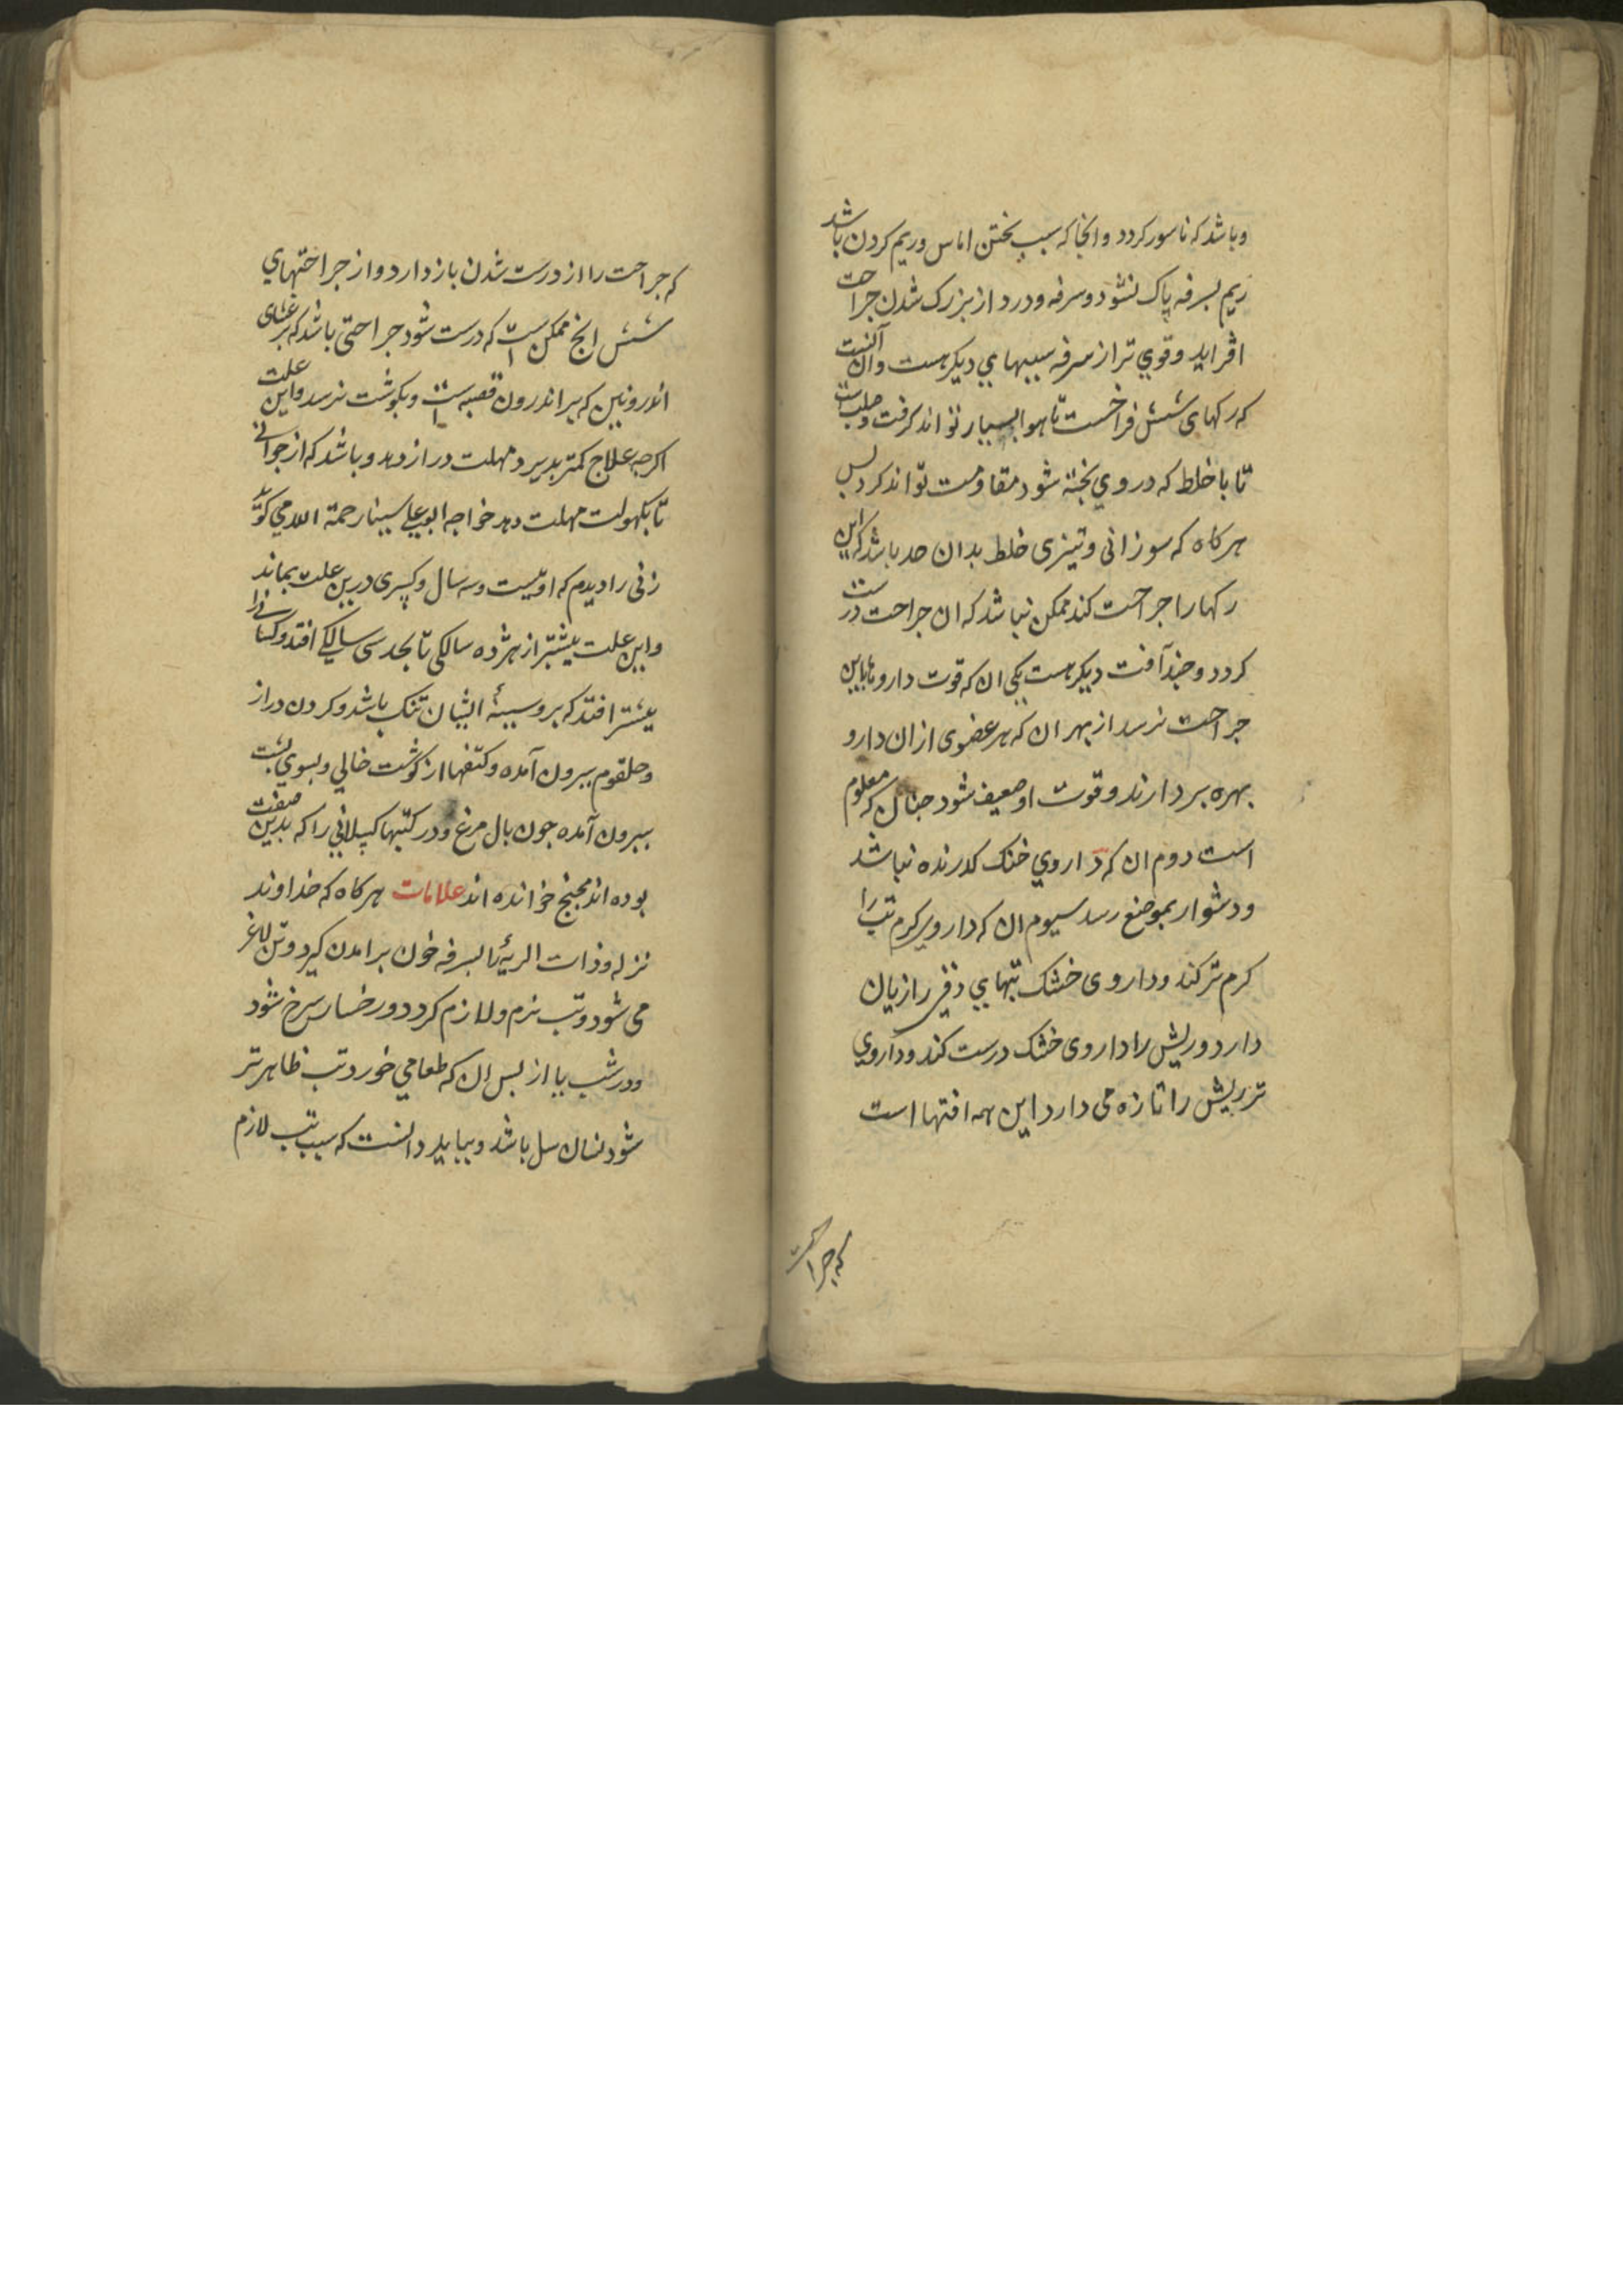 وباشد که ناسور کردد وانجا که سبب پختن اماس وریم کردن باشد
ریم بسرفه پاک نشود وسرفه ودرد از بزرک شدن جراحت
افزاید وقوي تر از سرفه سببهاي دیکر هست وان آنست
که رکهای شش فراخست تا هوا بسیار تواند کرفت وصلب است
تا با خلط که در وي پخته شود مقاومت تواند کرد پس
هرکاه که سوزانی وتیزی خلط بدان حد باشد که این
رکها را جراحت کند ممکن نباشد که ان جراحت درست
کردد وچند آفت دیکر هست یکي ان که قوت داروها باین
جراحت نرسد از بهر ان که هر عضوی ازان دارو
بهره بردارند وقوت او ضعیف شود چنان که معلوم
است دوم ان که داروي خنک کدارنده نباشد
ودشوار بموضع رسد سیوم ان که داروی کرم تب را
کرم تر کند وداروی خشک تبهاي دقی را زیان
دارد وریش را داروی خشک درست کند وداروي
تر ریش را تازه می دارد این همه افتها است
که جراحت
که جراحت را از درست شدن باز دارد واز جراحتهاي
شش انچ ممکن است که درست شود جراحتی باشد که بر غشای
اندرونین که بر اندرون قصبه است وبکوشت نرسد واین علت
اکرچه علاج کمتر پذیرد مهلت دراز دهد وباشد که از جوانی
تا بکهولت مهلت دهد خواجه ابوعلي سینا رحمة الله می کوید
زنی را دیدم که او بیست وسه سال وکسری درین علت بماند
واین علت بیشتر از هژده سالکی تا بحد سی سالکي افتد وکسانی را
بیشتر افتد که بر وسینهٔ ایشان تنک باشد وکردن دراز
وحلقوم بیرون آمده وکتفها از کوشت خالي وبسوی پشت
بیرون آمده چون بال مرغ ودر کتبها کسانی را که بدین صفت
بوده اند مجنح خوانده اند علامات هرکاه که خداوند
نزله وذات الریه را بسرفه خون برامدن کیرد وتن لاغر
می شود وتب نرم ولازم کردد ورخسار سرخ شود
ودر شب یا از پس ان که طعامي خورد تب ظاهرتر
شود نشان سل باشد وبباید دانست که سبب تب لازم